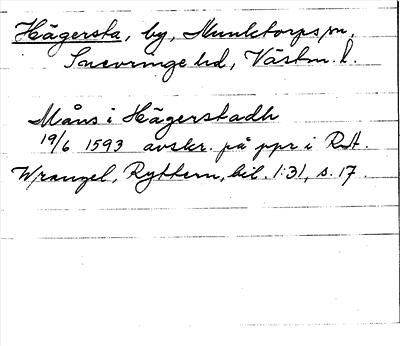 Hägersta, by, Munktorps sn,
Snevringe hd, Västm. l.
Måns i Hägerstadh
19/6 1593 avskr. på ppr i RA.
Wrangel, Ryttern, bil. 1:31, s. 17.